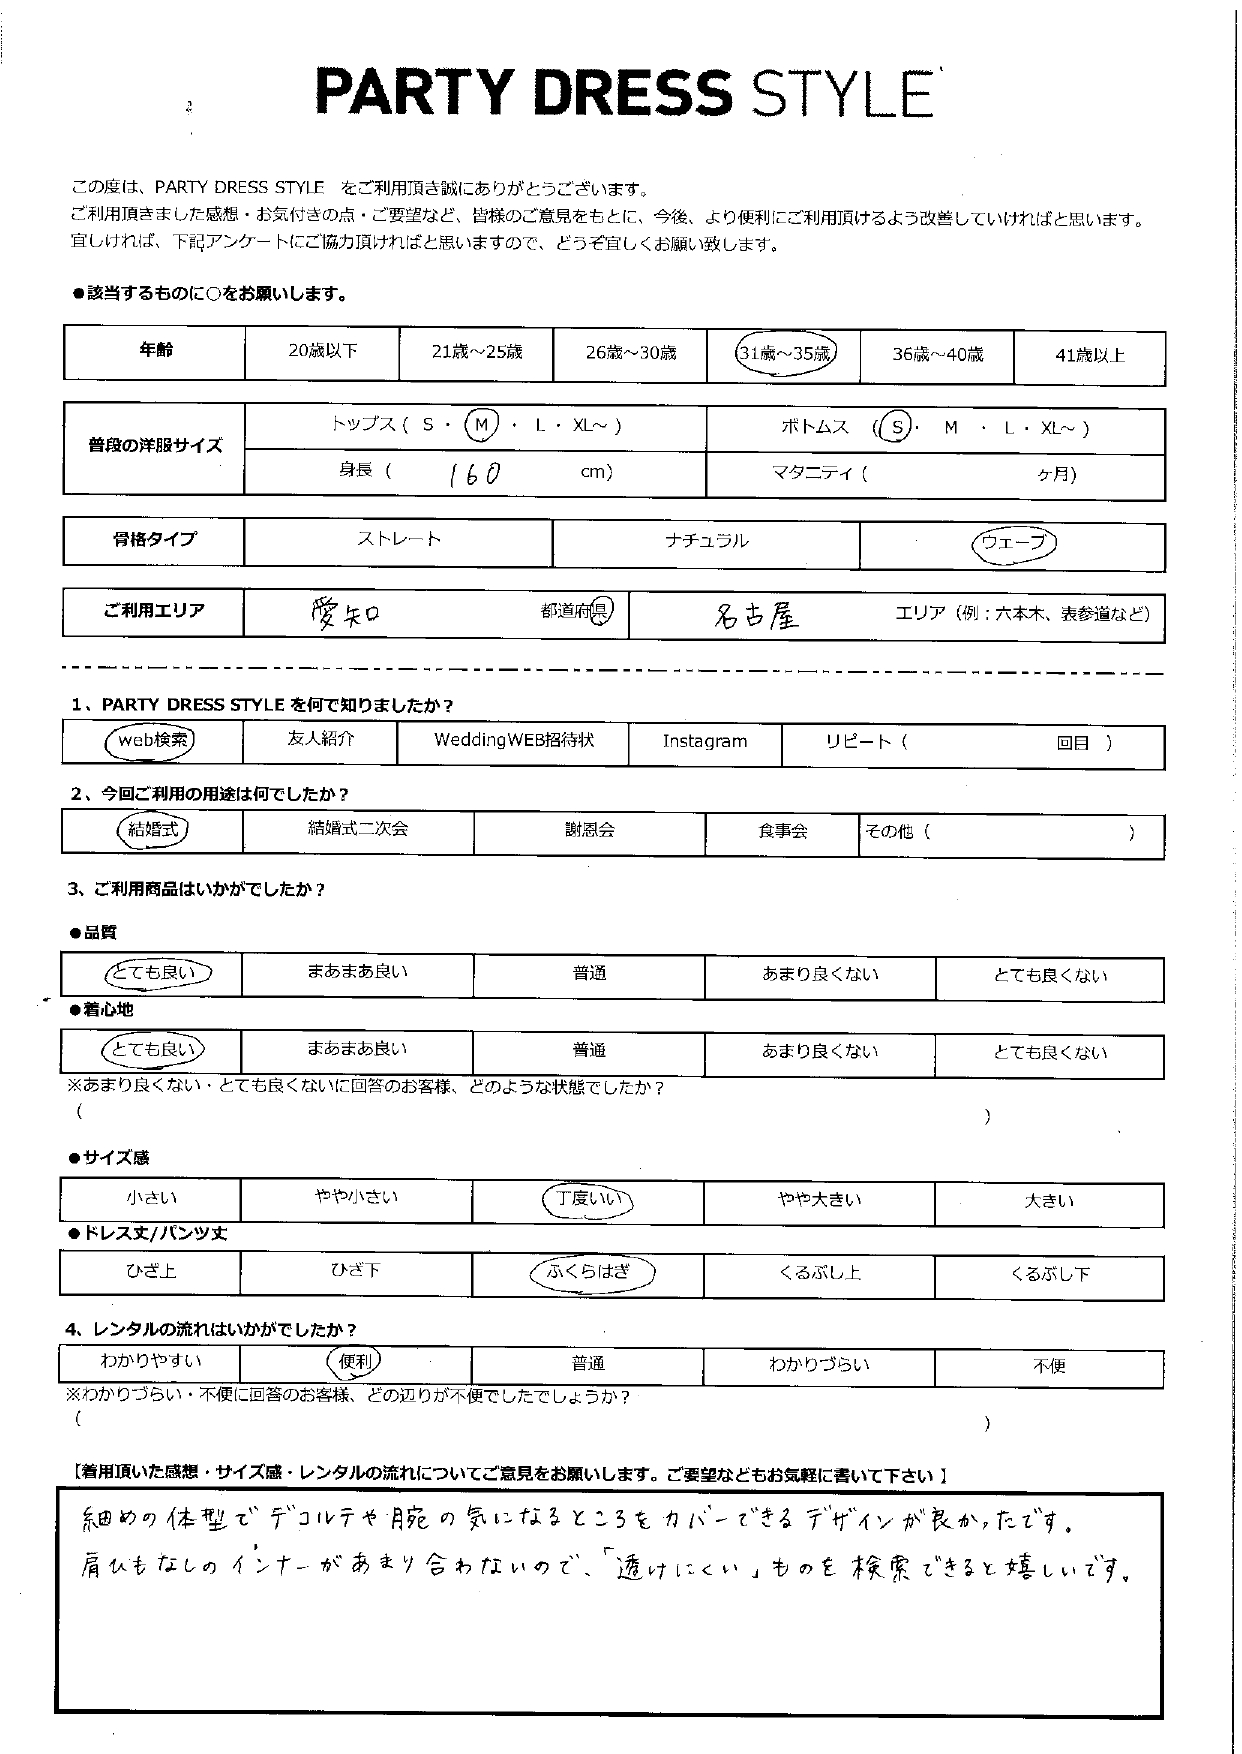 PARTY DRESS STYLE
この度は、PARTY DRESS STYLE をご利用頂き誠にありがとうございます。
ご利用頂きました感想・お気付きの点・ご要望など、皆様のご意見をもとに、今後、より便利にご利用頂けるよう改善していければと思います。
宜しければ、下記アンケートにご協力頂ければと思いますので、どうぞ宜しくお願い致します。
●該当するものに○をお願いします。
年齢 20歳以下 21歳～25歳 26歳～30歳 31歳～35歳 36歳～40歳 41歳以上
普段の洋服サイズ トップス ( S ・ M ・ L ・ XL～ ) ボトムス ( S ・ M ・ L ・ XL～ )
身長 ( 160 cm) マタニティ ( ヶ月)
骨格タイプ ストレート ナチュラル ウェーブ
ご利用エリア 愛知 都道府県 名古屋 エリア（例：六本木、表参道など）
1、PARTY DRESS STYLE を何で知りましたか？
web検索 友人紹介 WeddingWEB招待状 Instagram リピート ( 回目 )
2、今回ご利用の用途は何でしたか？
結婚式 結婚式二次会 謝恩会 食事会 その他 ( )
3、ご利用商品はいかがでしたか？
●品質
とても良い まあまあ良い 普通 あまり良くない とても良くない
●着心地
とても良い まあまあ良い 普通 あまり良くない とても良くない
※あまり良くない・とても良くないに回答のお客様、どのような状態でしたか？
( )
●サイズ感
小さい やや小さい 丁度いい やや大きい 大きい
●ドレス丈/パンツ丈
ひざ上 ひざ下 ふくらはぎ くるぶし上 くるぶし下
4、レンタルの流れはいかがでしたか？
わかりやすい 便利 普通 わかりづらい 不便
※わかりづらい・不便に回答のお客様、どの辺りが不便でしたでしょうか？
( )
【着用頂いた感想・サイズ感・レンタルの流れについてご意見をお願いします。ご要望などもお気軽に書いて下さい】
細めの体型でデコルテや腕の気になるところをカバーできるデザインが良かったです。
肩ひもなしのインナーがあまり合わないので、「透けにくい」ものを検索できると嬉しいです。